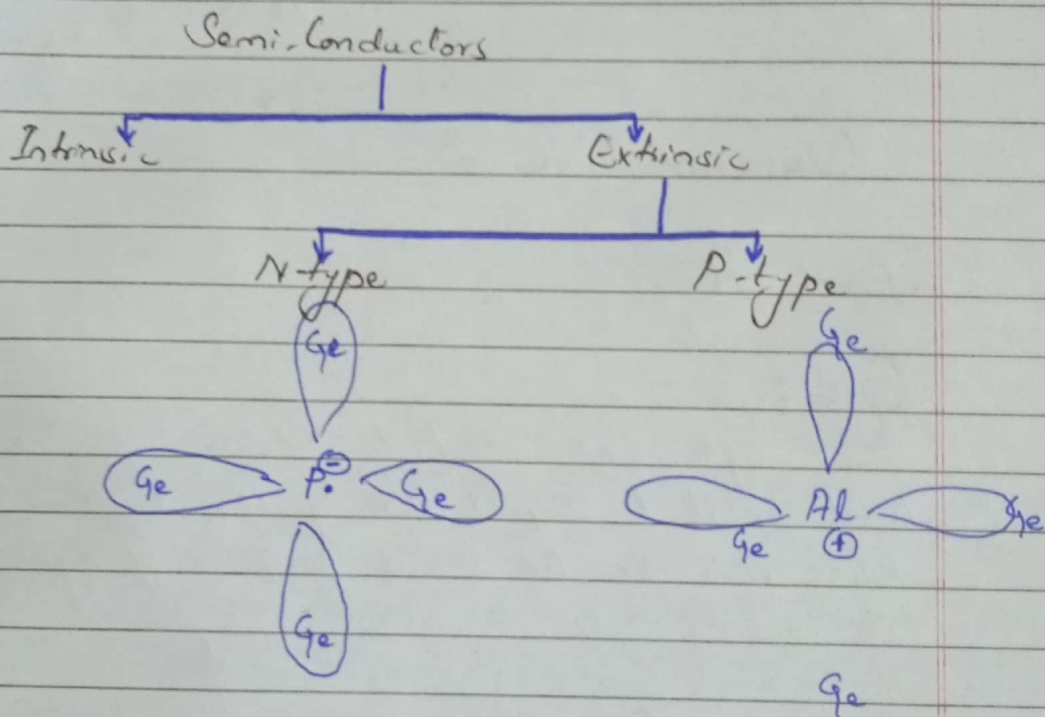 Semi-Conductors
Intrinsic Extrinsic
N-type P-type
Ge Ge
Ge P. ⊖ Ge Ge Al ⊕ Ge
Ge Ge